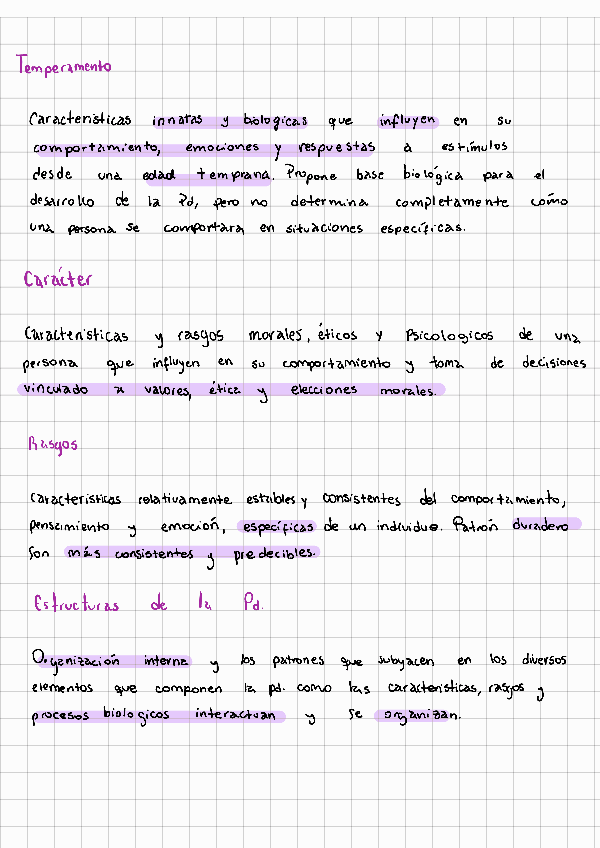 Temperamento
Características innatas y biologicas que influyen en su
comportamiento, emociones y respuestas a estímulos
desde una edad temprana. Propone base biológica para el
desarollo de la Pd, pero no determina completamente como
una persona se comportara en situaciones específicas.
Carácter
Características y rasgos morales, éticos y Psicologicos de una
persona que influyen en su comportamiento y toma de decisiones
vinculado a valores, ética y elecciones morales.
Rasgos
Características relativamente estables y consistentes del comportamiento,
pensamiento y emoción, específicas de un individuo. Patrón duradero
son más consistentes y predecibles.
Estructuras de la Pd.
Organización interna y los patrones que subyacen en los diversos
elementos que componen la pd. como las características, rasgos y
procesos biologicos interactuan y se organizan.